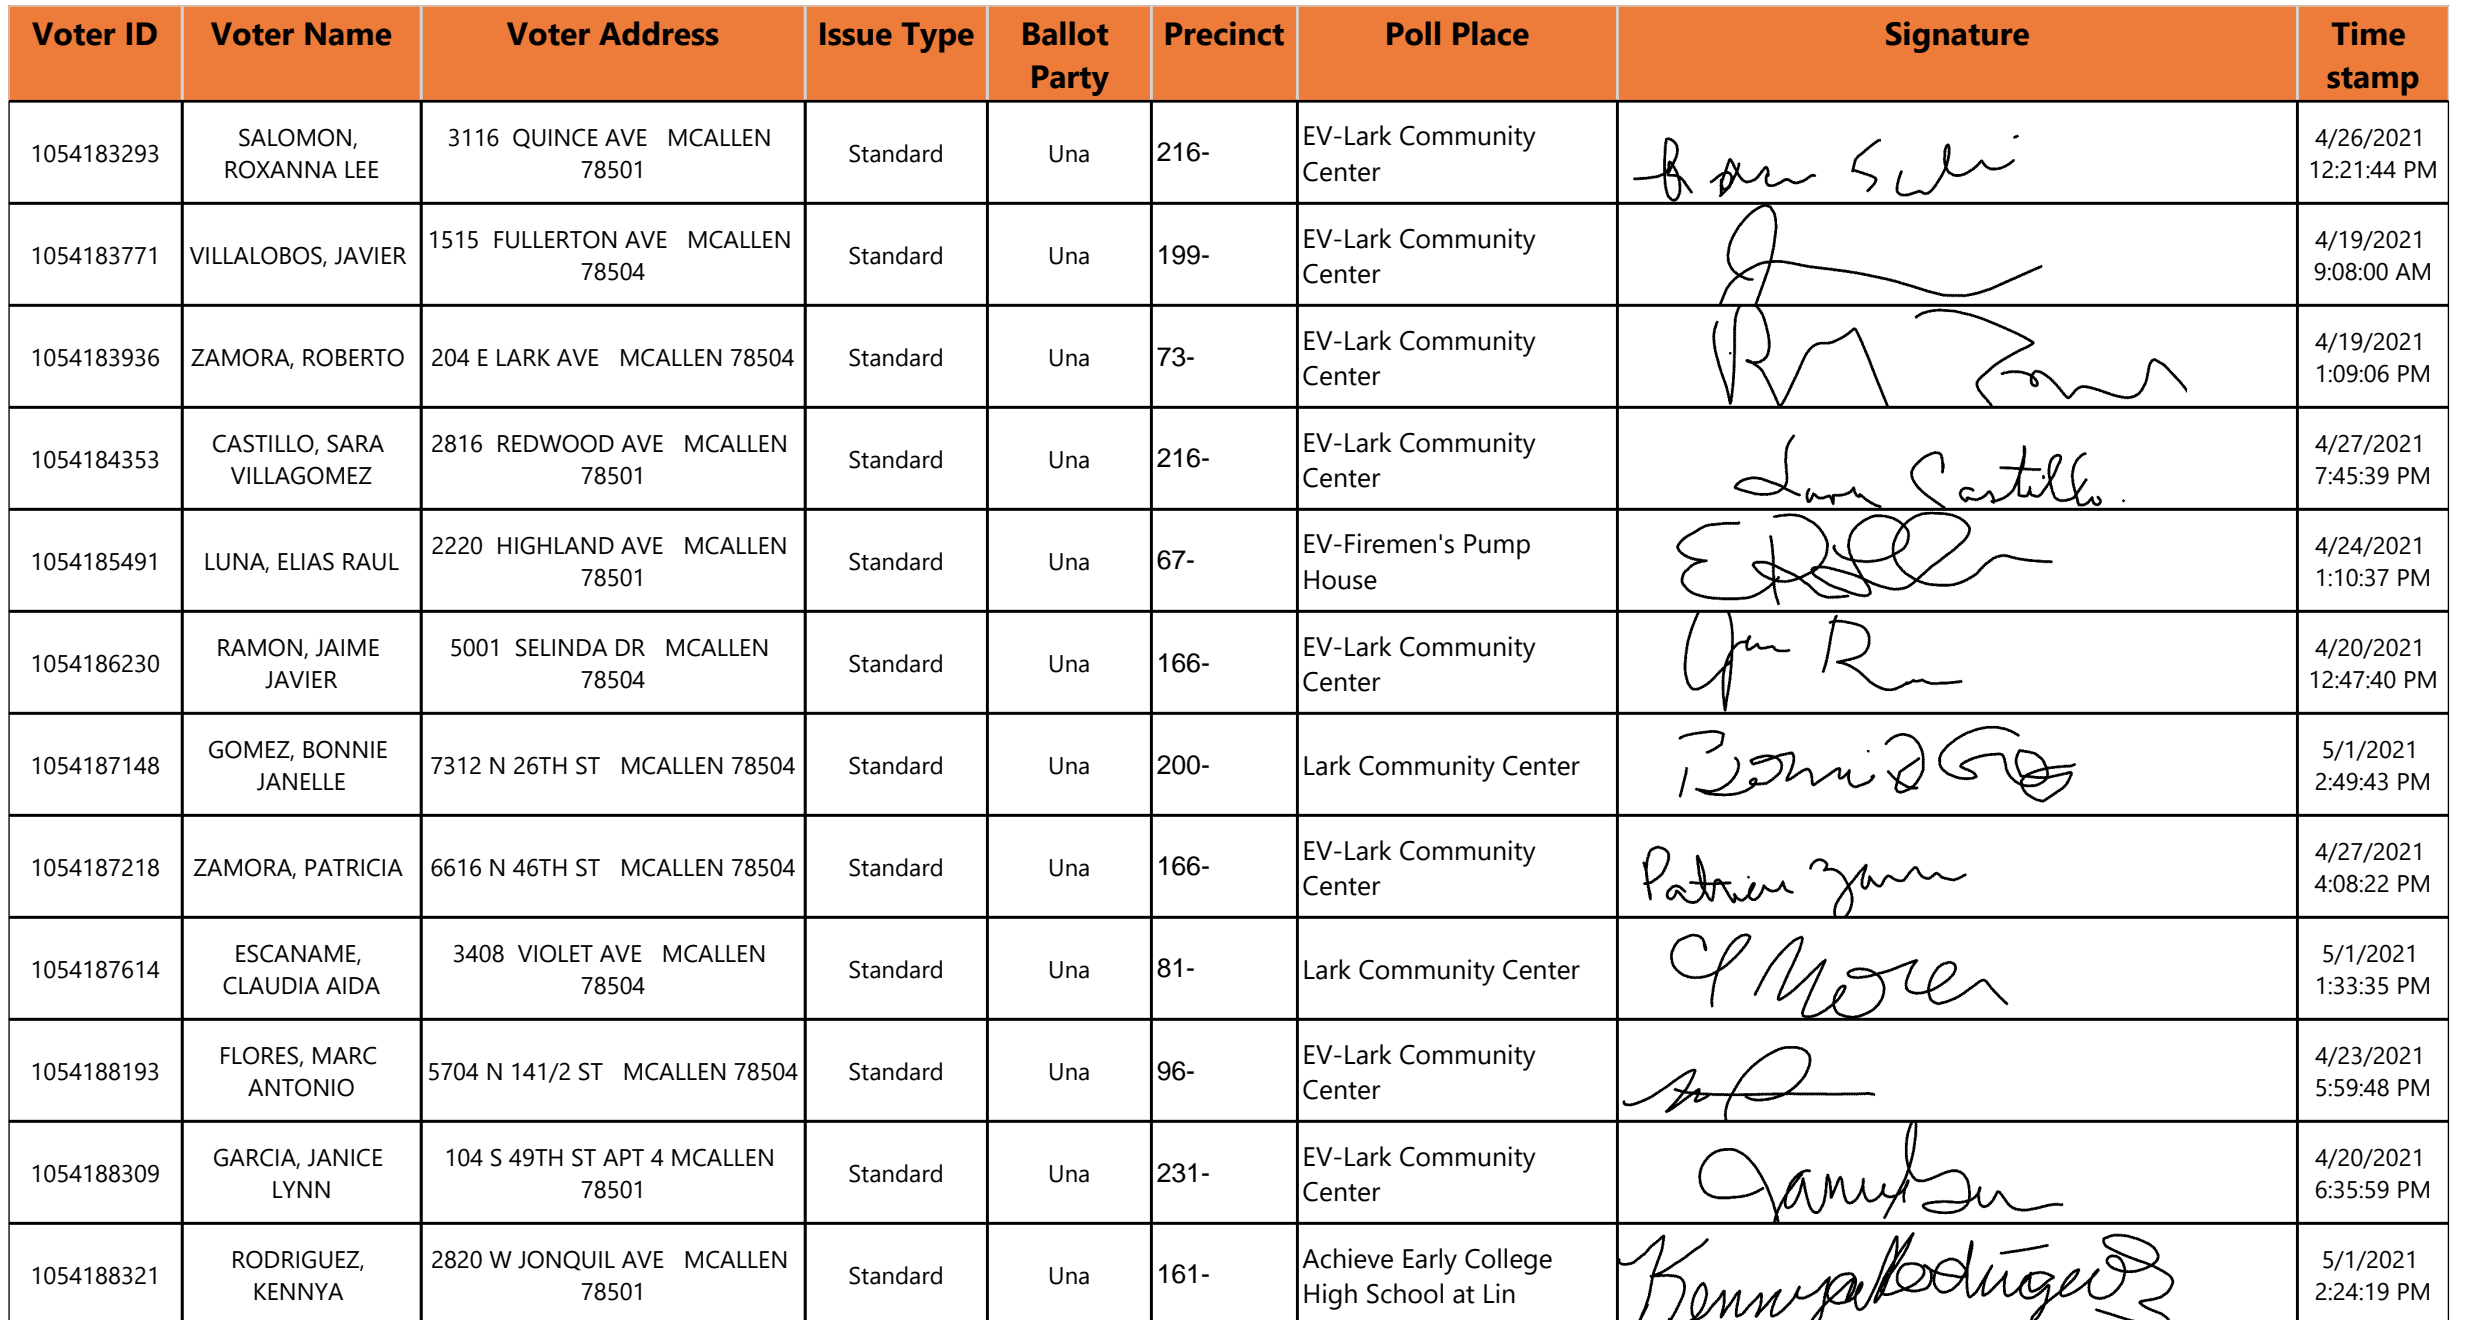 Voter ID Voter Name Voter Address Issue Type Ballot Party Precinct Poll Place Signature Time stamp
1054183293 SALOMON, ROXANNA LEE 3116 QUINCE AVE MCALLEN 78501 Standard Una 216- EV-Lark Community Center 4/26/2021 12:21:44 PM
1054183771 VILLALOBOS, JAVIER 1515 FULLERTON AVE MCALLEN 78504 Standard Una 199- EV-Lark Community Center 4/19/2021 9:08:00 AM
1054183936 ZAMORA, ROBERTO 204 E LARK AVE MCALLEN 78504 Standard Una 73- EV-Lark Community Center 4/19/2021 1:09:06 PM
1054184353 CASTILLO, SARA VILLAGOMEZ 2816 REDWOOD AVE MCALLEN 78501 Standard Una 216- EV-Lark Community Center Sara Castillo. 4/27/2021 7:45:39 PM
1054185491 LUNA, ELIAS RAUL 2220 HIGHLAND AVE MCALLEN 78501 Standard Una 67- EV-Firemen's Pump House 4/24/2021 1:10:37 PM
1054186230 RAMON, JAIME JAVIER 5001 SELINDA DR MCALLEN 78504 Standard Una 166- EV-Lark Community Center 4/20/2021 12:47:40 PM
1054187148 GOMEZ, BONNIE JANELLE 7312 N 26TH ST MCALLEN 78504 Standard Una 200- Lark Community Center 5/1/2021 2:49:43 PM
1054187218 ZAMORA, PATRICIA 6616 N 46TH ST MCALLEN 78504 Standard Una 166- EV-Lark Community Center 4/27/2021 4:08:22 PM
1054187614 ESCANAME, CLAUDIA AIDA 3408 VIOLET AVE MCALLEN 78504 Standard Una 81- Lark Community Center 5/1/2021 1:33:35 PM
1054188193 FLORES, MARC ANTONIO 5704 N 141/2 ST MCALLEN 78504 Standard Una 96- EV-Lark Community Center 4/23/2021 5:59:48 PM
1054188309 GARCIA, JANICE LYNN 104 S 49TH ST APT 4 MCALLEN 78501 Standard Una 231- EV-Lark Community Center 4/20/2021 6:35:59 PM
1054188321 RODRIGUEZ, KENNYA 2820 W JONQUIL AVE MCALLEN 78501 Standard Una 161- Achieve Early College High School at Lin Kennya Rodriguez 5/1/2021 2:24:19 PM